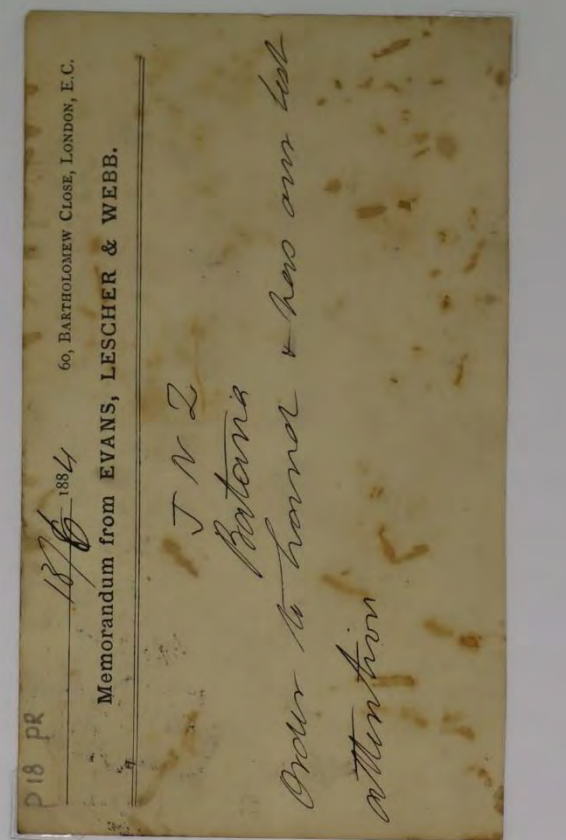 P18 PR
18/6 1884 60, BARTHOLOMEW CLOSE, LONDON, E.C.
Memorandum from EVANS, LESCHER & WEBB.
J N Z
Batavia
Order to hand & has our best
attention